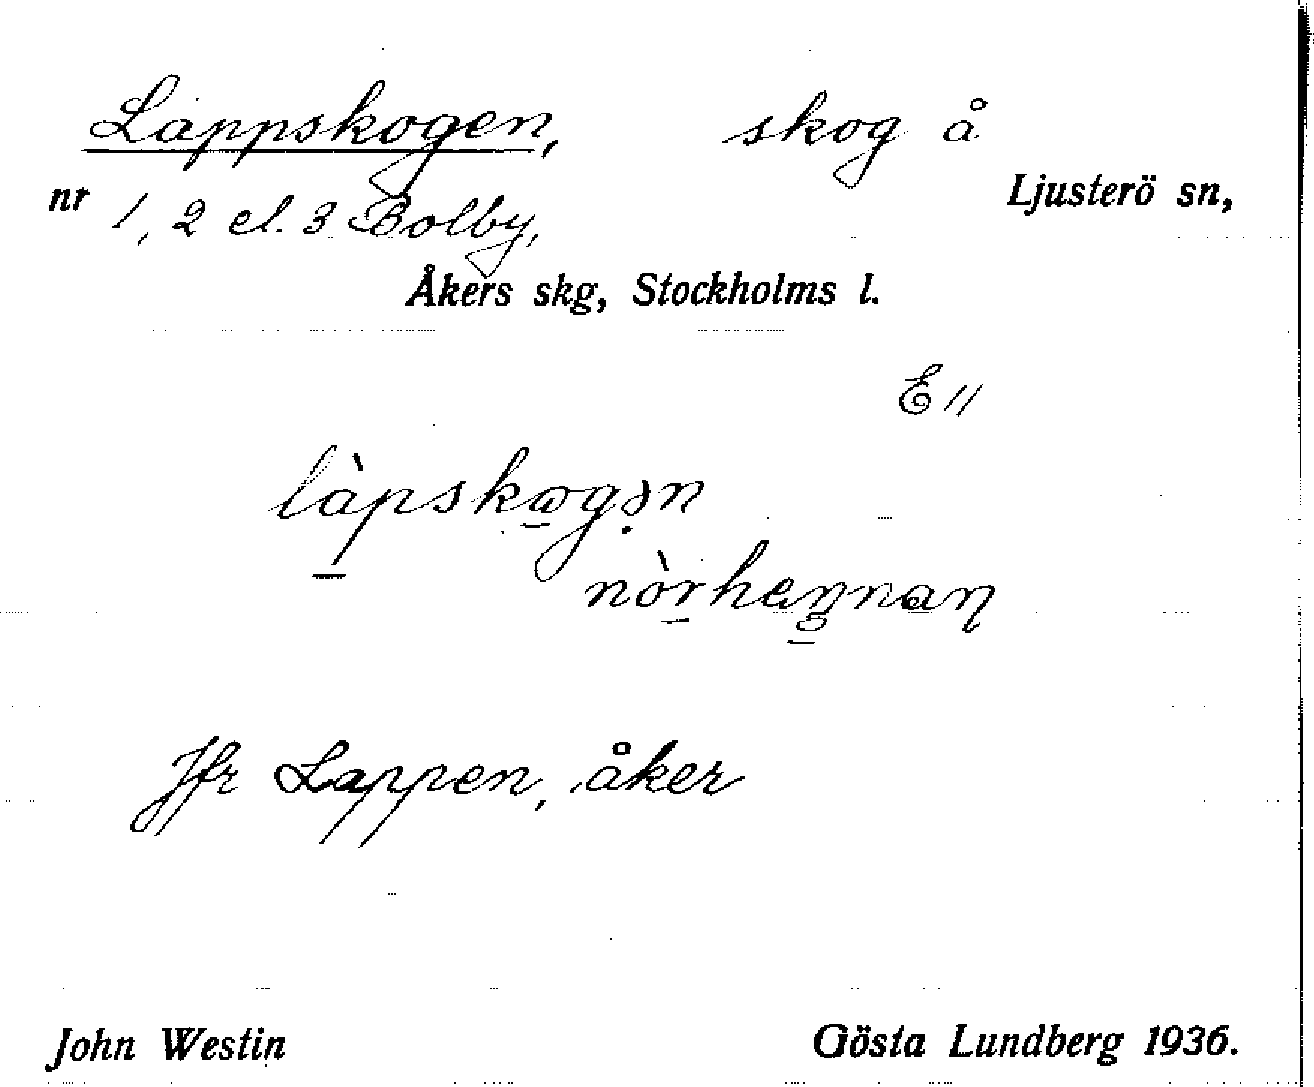 Lappskogen, skog å
nr 1, 2 el. 3 Bolby, Ljusterö sn,
Åkers skg, Stockholms l.
E//
làpskogən
Jfr Lappen, åker
John Westin Gösta Lundberg 1936.